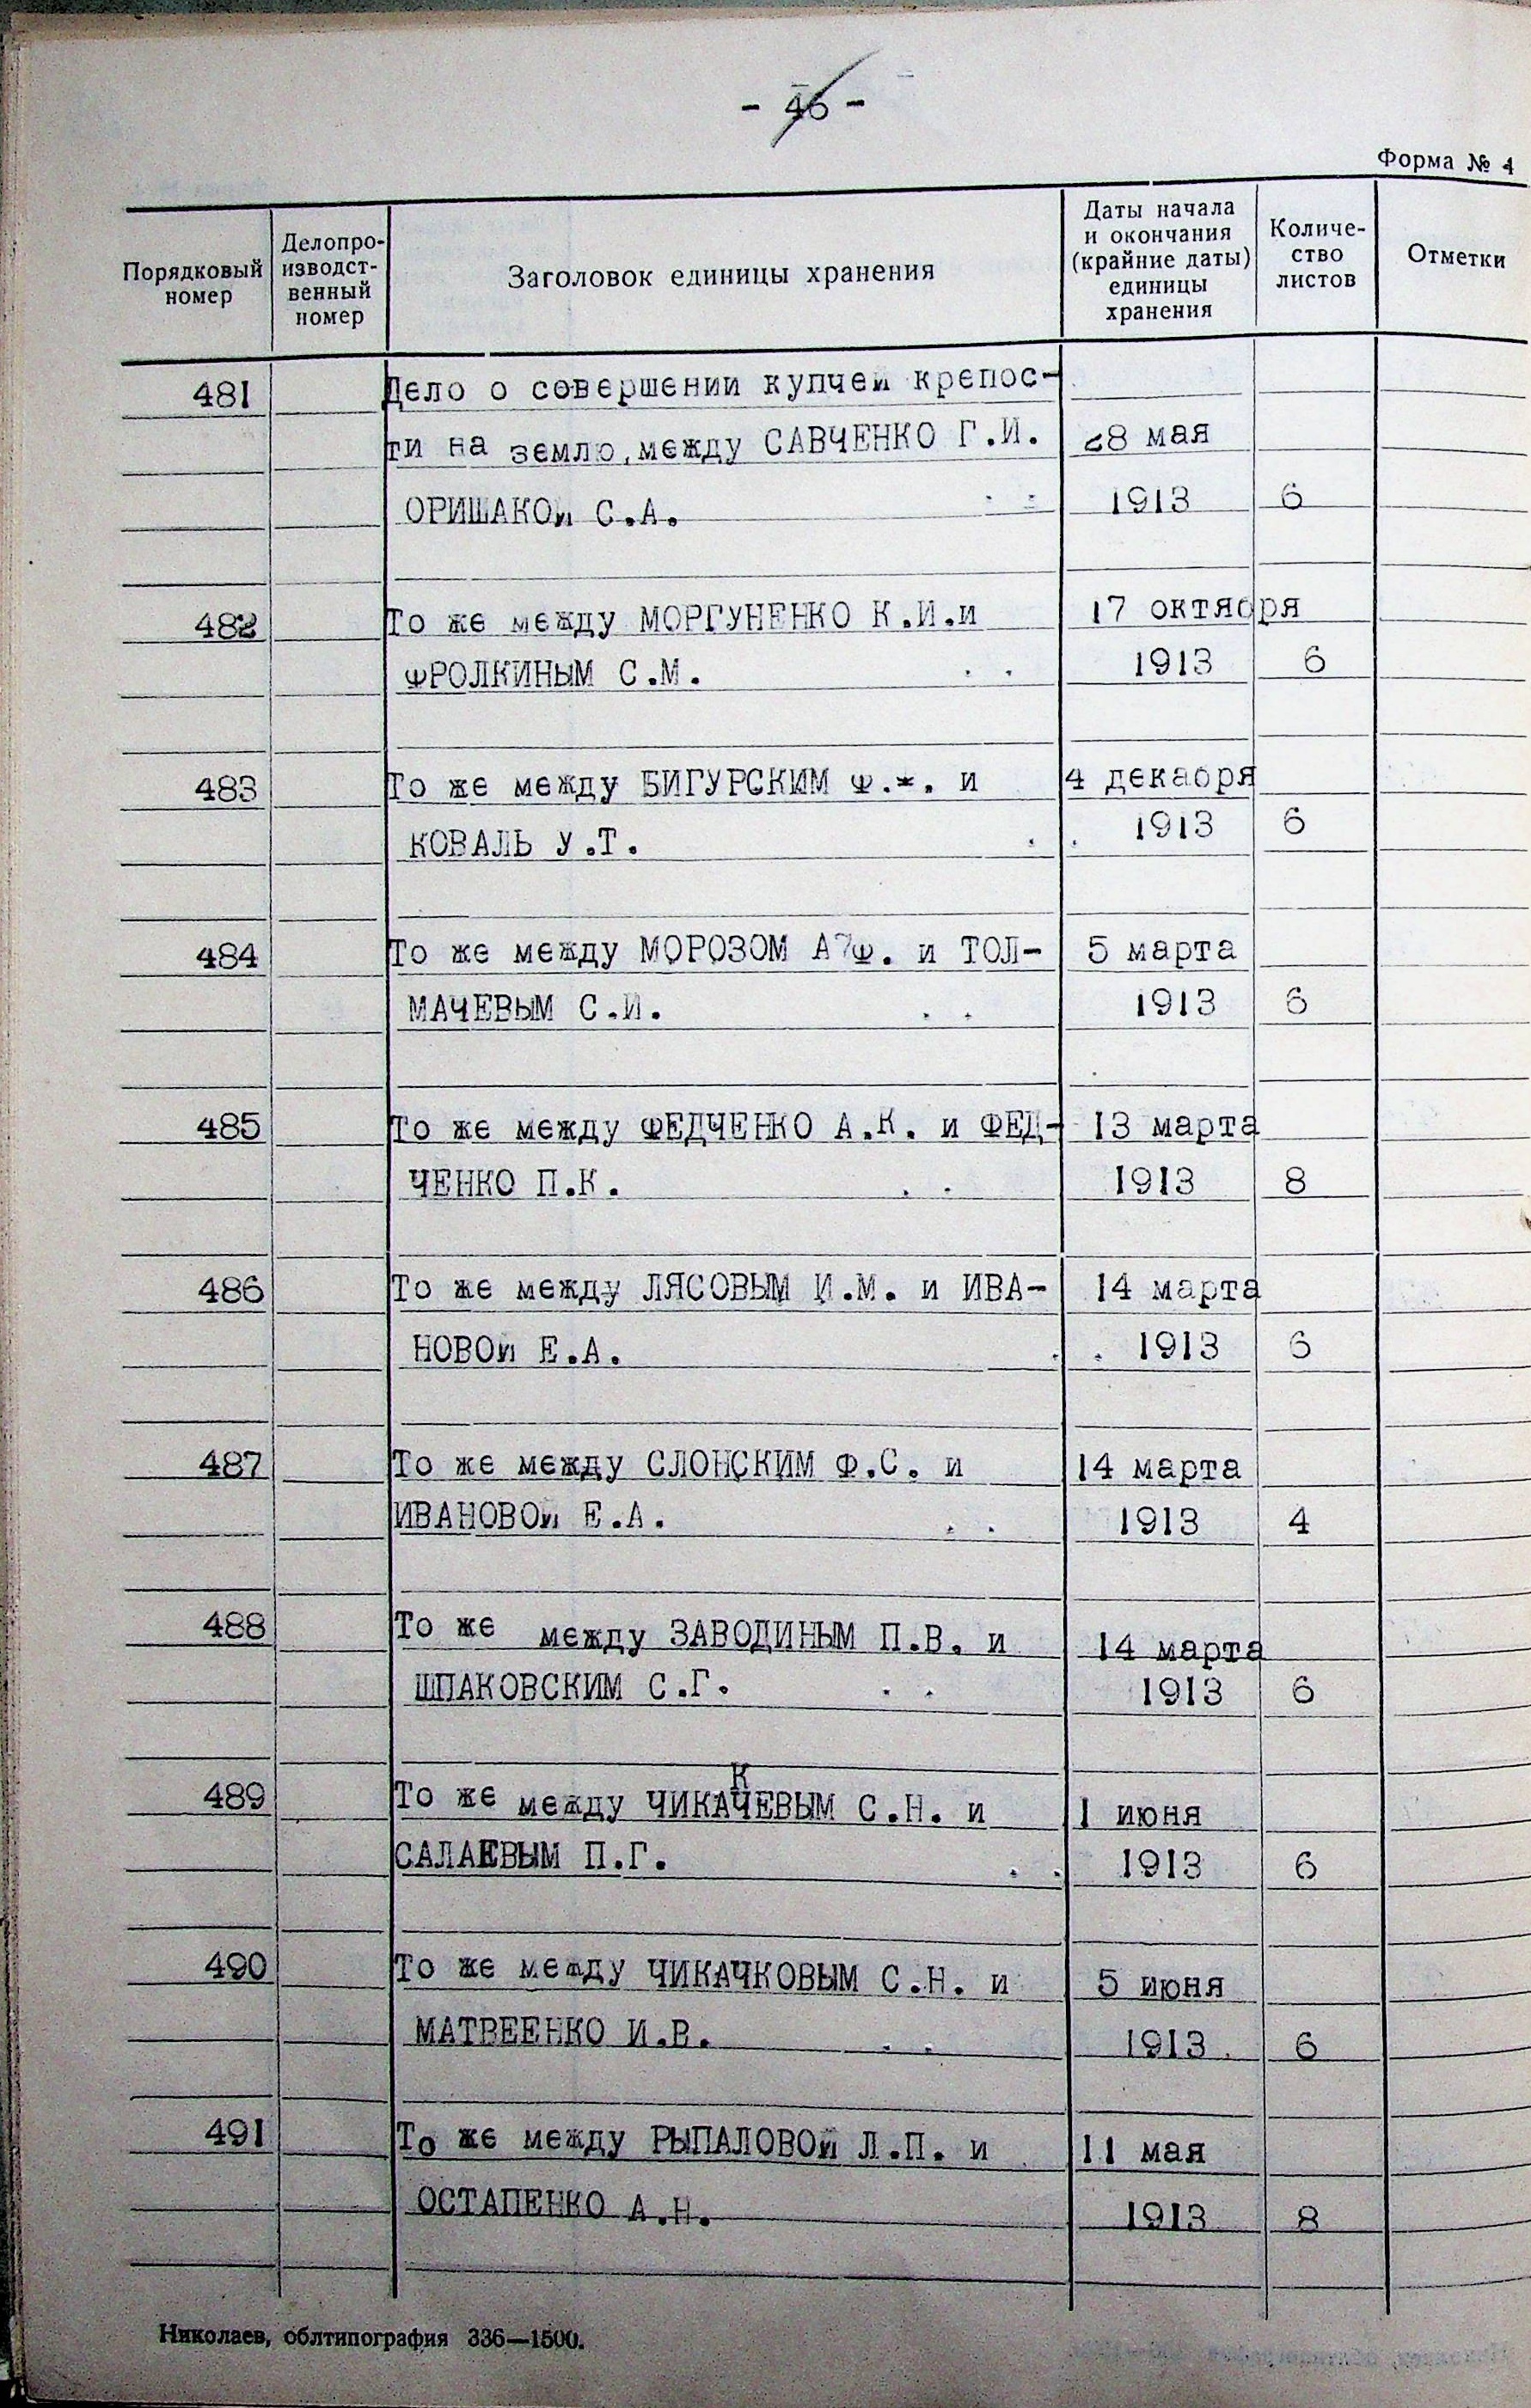 - 46 -
Форма № 4
Порядковый номер
Делопро-
изводст-
венный
номер
Заголовок единицы хранения
Даты начала
и окончания
(крайние даты)
единицы
хранения
Количе-
ство
листов
Отметки
481 Дело о совершении купчей крепос-
ти на землю, между САВЧЕНКО Г.И. 28 мая
ОРИШАКОй С.А. 1913 6
482 То же между МОРГУНЕНКО К.И.и 17 октября
ФРОЛКИНЫМ С.М. 1913 6
483 То же между БИГУРСКИМ Ф.*. и 4 декабря
КОВАЛЬ У.Т. 1913 6
484 То же между МОРОЗОМ А?Ф. и ТОЛ- 5 марта
МАЧЕВЫМ С.И. 1913 6
485 То же между ФЕДЧЕНКО А.К. и ФЕД- 13 марта
ЧЕНКО П.К. 1913 8
486 То же между ЛЯСОВЫМ И.М. и ИВА- 14 марта
НОВОй Е.А. 1913 6
487 То же между СЛОНСКИМ Ф.С. и 14 марта
ИВАНОВОй Е.А. 1913 4
488 То же между ЗАВОДИНЫМ П.В. и 14 марта
ШПАКОВСКИМ С.Г. 1913 6
К
489 То же между ЧИКАЧЕВЫМ С.Н. и 1 июня
САЛАЕВЫМ П.Г. 1913 6
490 То же между ЧИКАЧКОВЫМ С.Н. и 5 июня
МАТВЕЕНКО И.В. 1913 6
491 То же между РЫПАЛОВОй Л.П. и 11 мая
ОСТАПЕНКО А.Н. 1913 8
Николаев, облтипография 336—1500.